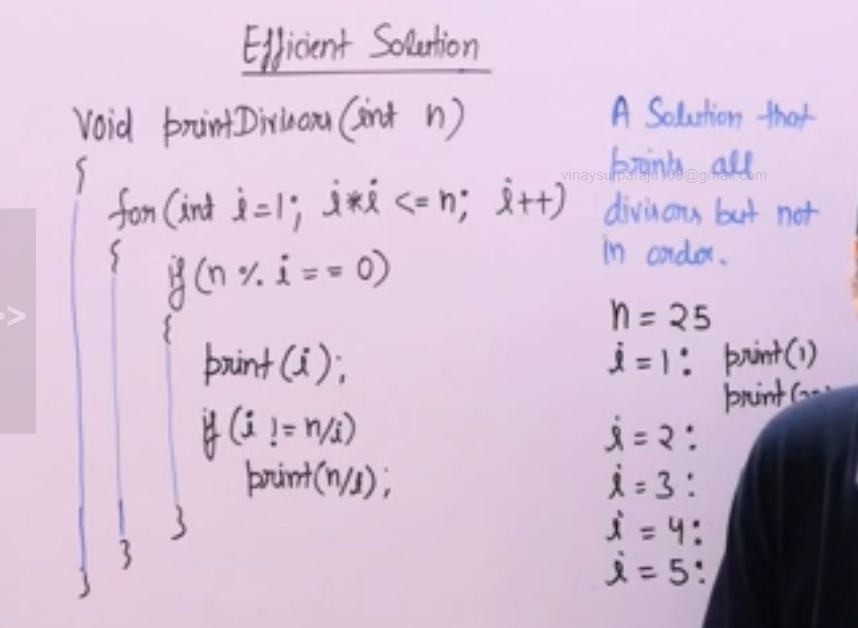 Efficient Solution
void printDivisors(int n)
{
for(int i=1; i*i <= n; i++)
{
if(n % i == 0)
{
print(i);
if(i != n/i)
print(n/i);
}
}
}
A Solution that
prints all
divisors but not
in order.
vinaysurparaju108@gmail.com
n = 25
i = 1: print(1)
print(
i = 2:
i = 3:
i = 4:
i = 5:
>>